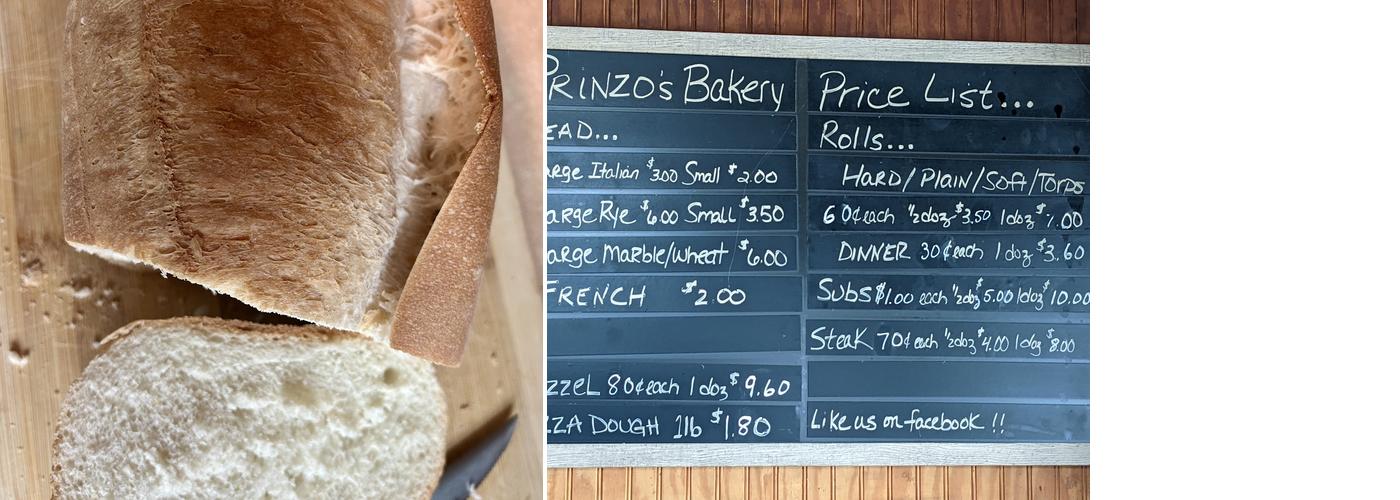 PRINZO'S Bakery
EAD...
arge Italian $3.00 Small $2.00
arge Rye $6.00 Small $3.50
arge Marble/Wheat $6.00
FRENCH $2.00
zzeL 80¢each 1doz $9.60
ZZA DOUGH 1lb $1.80
Price List...
Rolls...
HARD/Plain/Soft/Torps
60¢each ½doz $3.50 1doz $7.00
DINNER 30¢each 1doz $3.60
Subs $1.00 each ½doz $5.00 1doz $10.00
Steak 70¢each ½doz $4.00 1doz $8.00
Like us on facebook !!